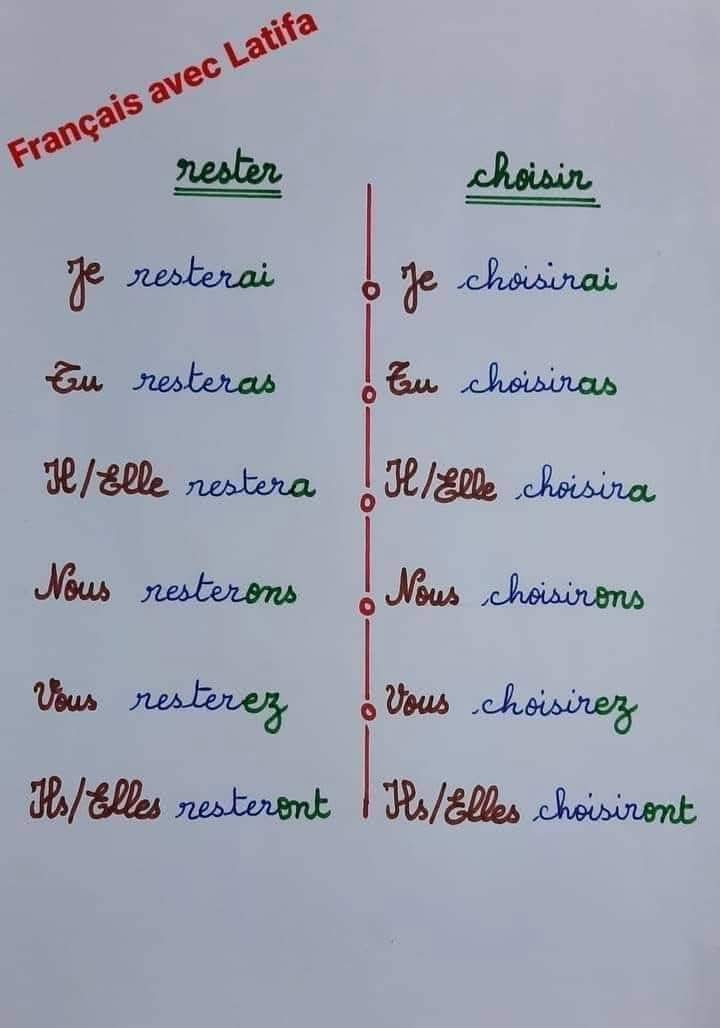 Français avec Latifa
rester
choisir
Je resterai
Je choisirai
Tu resteras
Tu choisiras
Il/Elle restera
Il/Elle choisira
Nous resterons
Nous choisirons
Vous resterez
Vous choisirez
Ils/Elles resteront
Ils/Elles choisiront